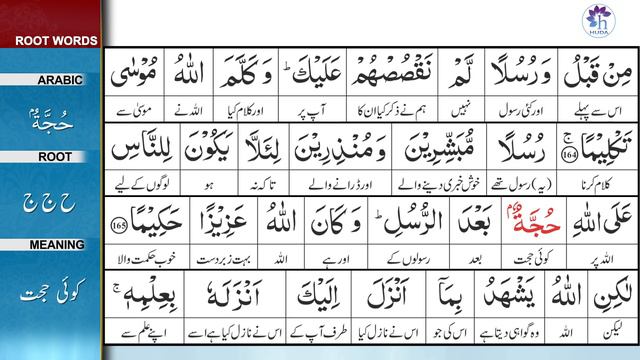 HUDA
ROOT WORDS
ARABIC
حُجَّةٌۢ
ROOT
ح ج ج
MEANING
کوئی حجت
مِنْ قَبْلُ وَرُسُلًا لَّمْ نَقْصُصْهُمْ عَلَيْكَ ؕ وَكَلَّمَ اللّٰهُ مُوْسٰى
اس سے پہلے اور کئی رسول نہیں ہم نے ذکر کیا ان کا آپ پر اور کلام کیا اللہ نے موسیٰ سے
تَكْلِيْمًا ۚ ‏164 رُسُلًا مُّبَشِّرِيْنَ وَمُنْذِرِيْنَ لِئَلَّا يَكُوْنَ لِلنَّاسِ
کلام کرنا (یہ) رسول تھے خوش خبری دینے والے اور ڈرانے والے تاکہ نہ ہو لوگوں کے لیے
عَلَى اللّٰهِ حُجَّةٌۢ بَعْدَ الرُّسُلِ ؕ وَكَانَ اللّٰهُ عَزِيْزًا حَكِيْمًا ‏165
اللہ پر کوئی حجت بعد رسولوں کے اور ہے اللہ بہت زبردست خوب حکمت والا
لٰكِنِ اللّٰهُ يَشْهَدُ بِمَاۤ اَنْزَلَ اِلَيْكَ اَنْزَلَهٗ بِعِلْمِهٖ ۚ
لیکن اللہ وہ گواہی دیتا ہے اس کی جو اس نے نازل کیا طرف آپ کے اس نے نازل کیا ہے اسے اپنے علم سے